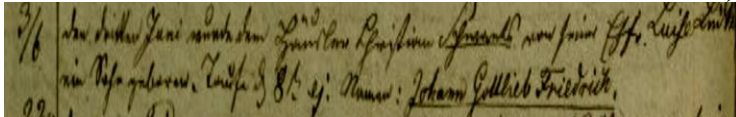 3/6 den dritten Juni wurde dem Häusler Christian Schwartz von seiner Ehfr. Luise
ein Sohn geboren, Taufe d 8t. ej: Namen: Johann Gottlieb Friedrich.